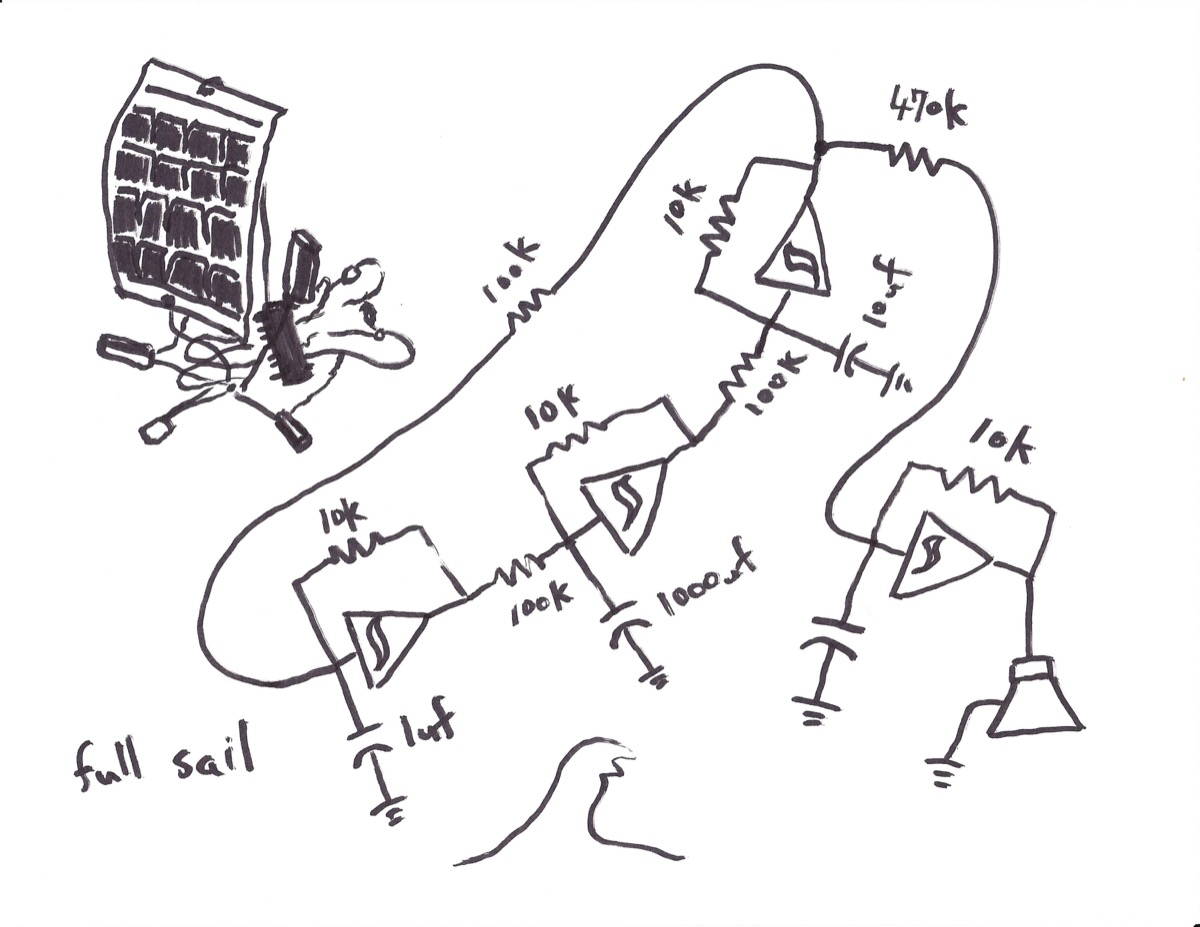 470k
10k
100k
10uf
100k
10k
10k
10k
100k
1000uf
1uf
full sail